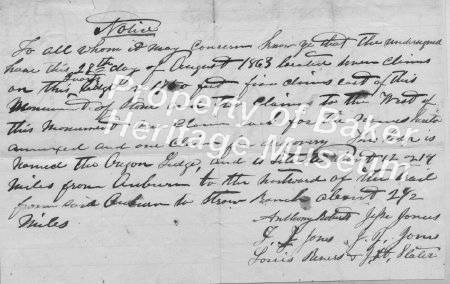 Notice
To all whom it may concern know ye that the undersigned
have this 28th day of August 1863 located seven claims
on this Quartz Ledge of 1400 feet five claims east of this
Monument of Stone and two claims to the West of
this Monument claim for the names hereto
annexed and one claim for discovery ledge is
named the Oregon Ledge and is about 12
miles from Auburn to the westward of the trail
from said Auburn to Straw Ranch about 2 1/2
miles
Anthony Jesse Jones
T. J. Jones J. T. Jones
Louis & Slater
Property of Baker
Heritage Museum